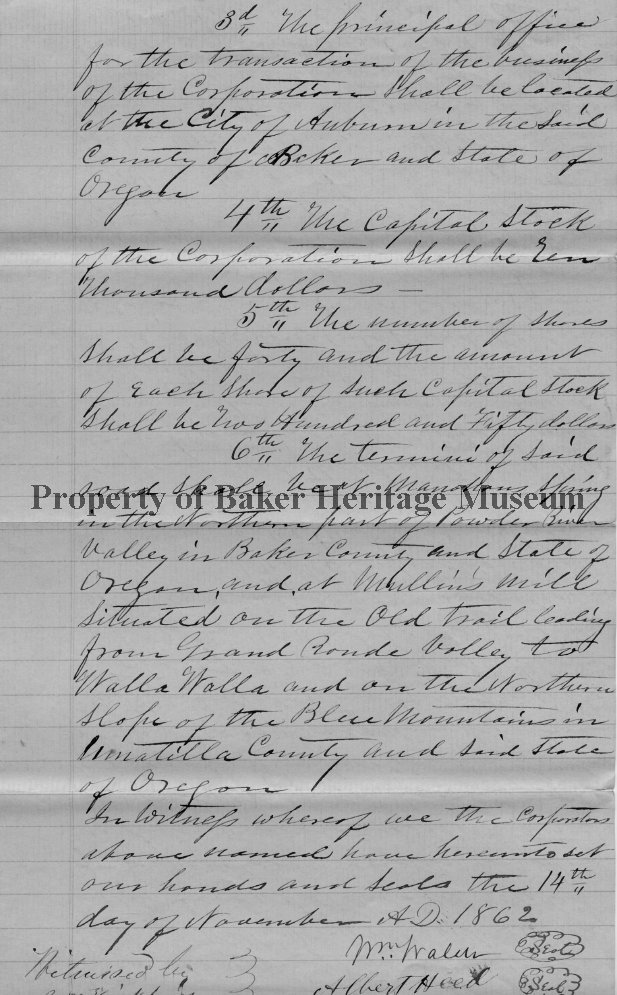 3d The principal office
for the transaction of the business
of the Corporation shall be located
at the City of Auburn in the said
County of Baker and State of
Oregon
4th The Capital Stock
of the Corporation shall be Ten
Thousand dollars —
5th The number of shares
shall be forty and the amount
of Each share of such Capital Stock
shall be Two Hundred and Fifty dollars
6th The termini of said
road shall be at Spring
Property of Baker Heritage Museum
in the Northern part of Powder River
Valley in Baker County and State of
Oregon, and, at Mullin's Mill
Situated on the Old trail leading
from Grand Ronde Valley to
Walla Walla and on the Northern
Slope of the Blue Mountains in
Umatilla County and said State
of Oregon
In Witness whereof we the Corporators
above named have hereunto set
our hands and seals the 14th
day of November A.D. 1862
Wm Seal
Witnessed by
Albert Seal